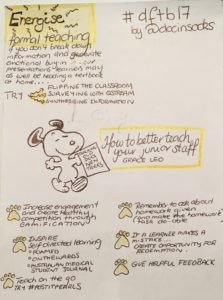 Energise
formal teaching
if you don't break down
information and generate
emotional buy in your
presentations learners may
as well be reading a textbook
at home....
TRY
FLIPPING THE CLASSROOM
SURVEYING WITH
SYNTHESISING INFORMATION
# dftb17
by @docinsocks
How to better teach
your junior staff
GRACE LEO
Increase engagement
and create healthy
competition through
GAMIFICATION!
INSPIRE
Self directed learning
FOAMED
ONTHEWARDS
AUSTRALIAN MEDICAL
STUDENT JOURNAL
Teach on the go
TRY #POSTITPEARLS
Remember to ask about
homework given
Also make the homework
task do-able
IF A LEARNER MAKES A
MISTAKE...
CREATE OPPORTUNITY FOR
REDEMPTION
GIVE HELPFUL FEEDBACK